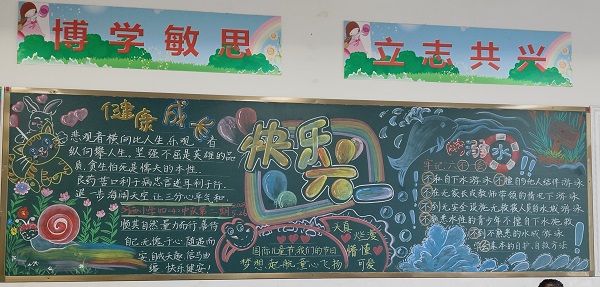 博学敏思
立志共兴
健康成长
悲观者横向比人生,乐观者
纵向攀人生。坚强不屈是英雄的品
质,贪生怕死是懦夫的本性。
良药苦口利于病忠言逆耳利于行。
退一步海阔天空,让三分心平气和
小学四(1)中队第一期
顺其自然量力而行善待
自己无愧于心随遇而
安,自成天趣,信马由
缰 快乐健安!
快乐
六一
国际儿童节我们的节日
梦想起航童心飞扬
天真
烂漫
懵懂
可爱
防溺水
牢记六不
不私自下水游泳 不擅自与他人结伴游泳
不在无家长或教师带领的情况下游泳
不到无安全设施无救援人员的水域游泳
不熟悉水性的青少年不擅自下水施救
不到不熟悉的水域游泳
基本的自护、自救方法